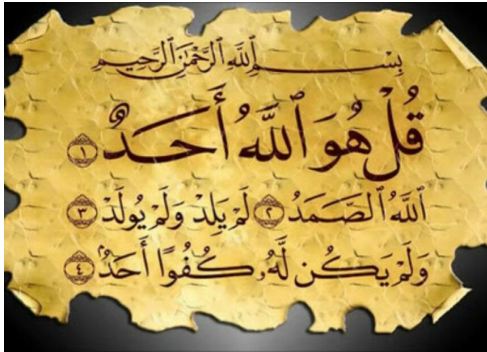 بِسْمِ ٱللَّهِ ٱلرَّحْمَٰنِ ٱلرَّحِيمِ
قُلْ هُوَ ٱللَّهُ أَحَدٌ ١
ٱللَّهُ ٱلصَّمَدُ ٢ لَمْ يَلِدْ وَلَمْ يُولَدْ ٣
وَلَمْ يَكُن لَّهُۥ كُفُوًا أَحَدٌۢ ٤